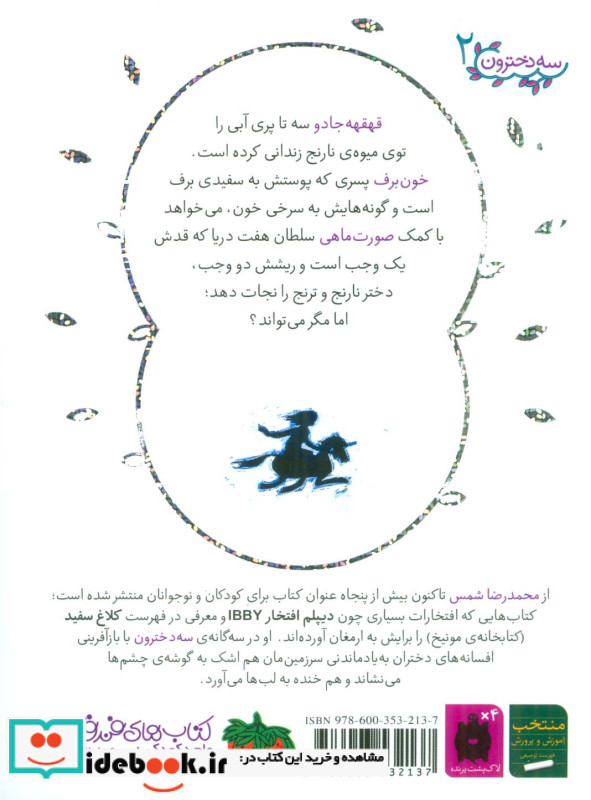 سه‌دخترون ۲
قهقهه‌جادو سه تا پری آبی را
توی میوه‌ی نارنج زندانی کرده است.
خون‌برف پسری که پوستش به سفیدی برف
است و گونه‌هایش به سرخی خون، می‌خواهد
با کمک صورت‌ماهی سلطان هفت دریا که قدش
یک وجب است و ریشش دو وجب،
دختر نارنج و ترنج را نجات دهد؛
اما مگر می‌تواند؟
از محمدرضا شمس تاکنون بیش از پنجاه عنوان کتاب برای کودکان و نوجوانان منتشر شده است؛
کتاب‌هایی که افتخارات بسیاری چون دیپلم افتخار IBBY و معرفی در فهرست کلاغ سفید
(کتابخانه‌ی مونیخ) را برایش به ارمغان آورده‌اند. او در سه‌گانه‌ی سه‌دخترون با بازآفرینی
افسانه‌های دختران به‌یادماندنی سرزمین‌مان هم اشک به گوشه‌ی چشم‌ها
می‌نشاند و هم خنده به لب‌ها می‌آورد.
کتاب‌های فندق
ISBN 978-600-353-213-7
32137
×۴
لاک‌پشت پرنده
منتخب
آموزش و پرورش
فهرست توصیفی
مشاهده و خرید این کتاب در:
idebook.ir